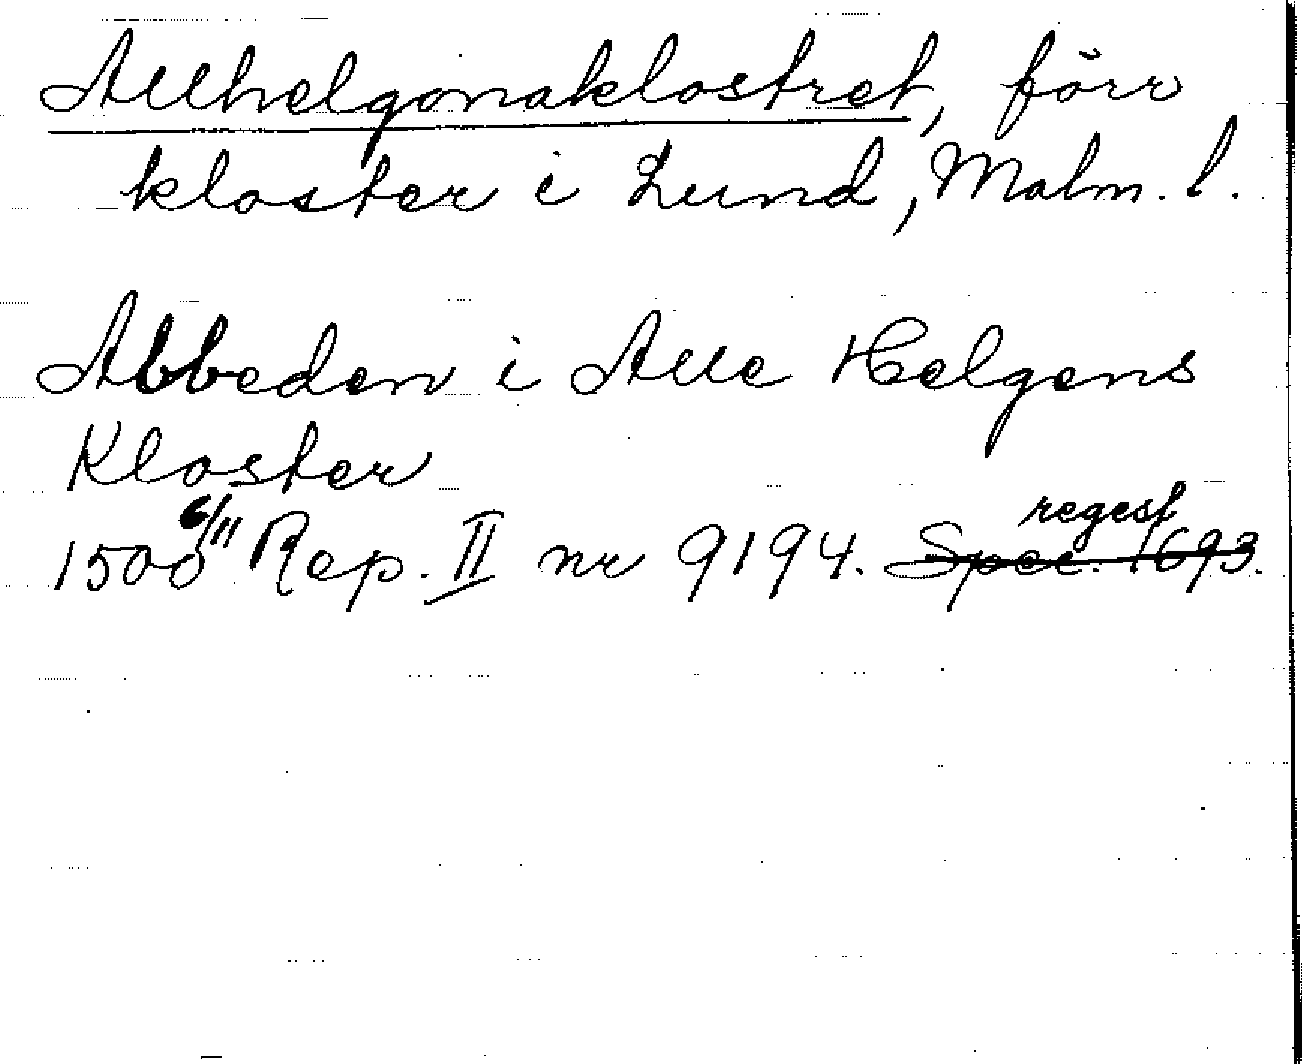 Allhelgonaklostret, förr
kloster i Lund, Malm. l.
Abbeden i Alle Helgens
Kloster
1500 6/11 Rep. II nr 9194. Spec. 1693.
regest